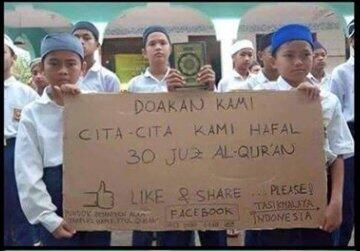 DOAKAN KAMI
CITA-CITA KAMI HAFAL
30 JUZ AL-QUR'AN
LIKE & SHARE ... PLEASE!
FACEBOOK
TASIKMALAYA
INDONESIA
PONDOK PESANTREN